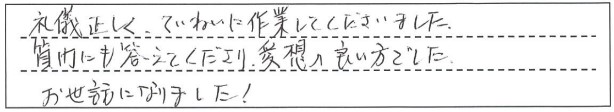 礼儀正しく、ていねいに作業してくださいました。
質問にも答えてくださり、愛想の良い方でした。
お世話になりました！